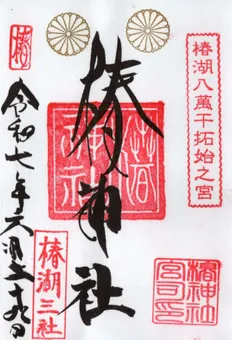 椿湖八萬干拓始之宮
椿
椿神社
椿神社
椿湖三社
令和七年六月二十九日
椿神社宮司之印